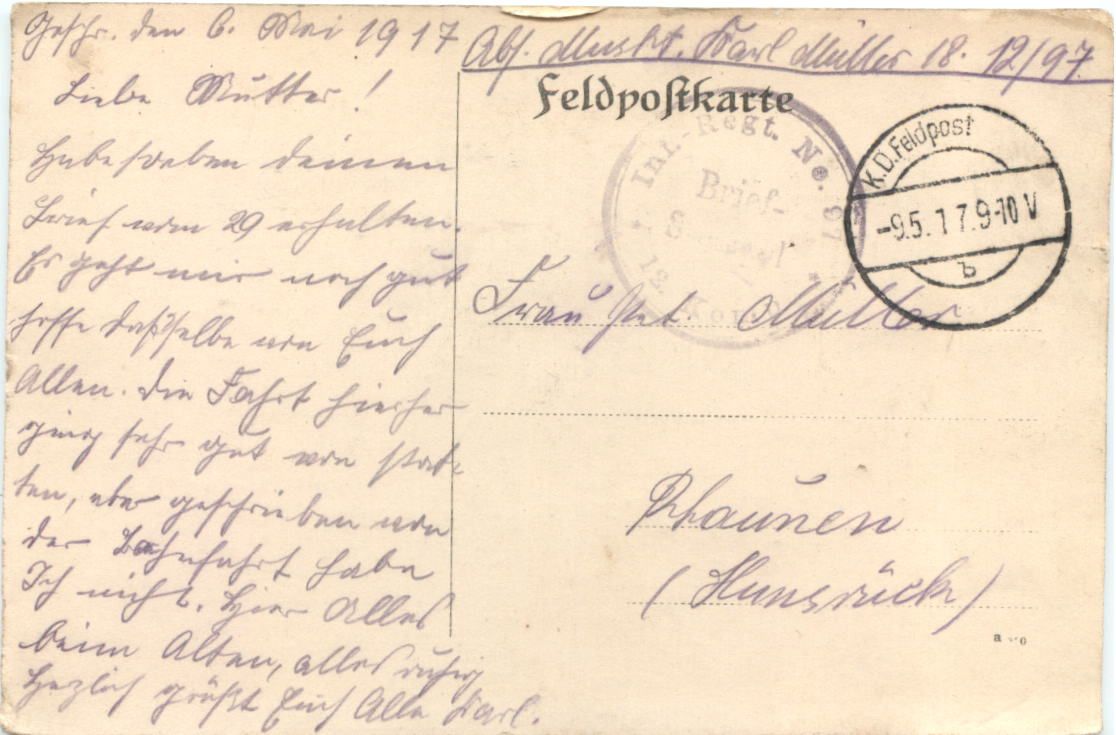 Geschr. den 6. Mai 1917
Liebe Mutter!
Habe soeben deinen
Brief vom 29 erhalten.
Es geht mir noch gut
hoffe daßselbe von Euch
Allen. Die Fahrt hierher
ging sehr gut von stat-
ten, aber geschrieben von
der Bahnfahrt habe
Ich nicht. Hier Alles
beim Alten, alles ruhig
Herzlich grüßt Euch Alle Karl.
Abs. Muskt. Karl Müller 18. 12/97.
Feldpostkarte
Inf.-Regt. No. 97
Brief-
Stempel
12. Komp.
K.D. Feldpost
-9.5.17.9-10 V
b
Frau Pet Müller
Rhaunen
(Hunsrück)